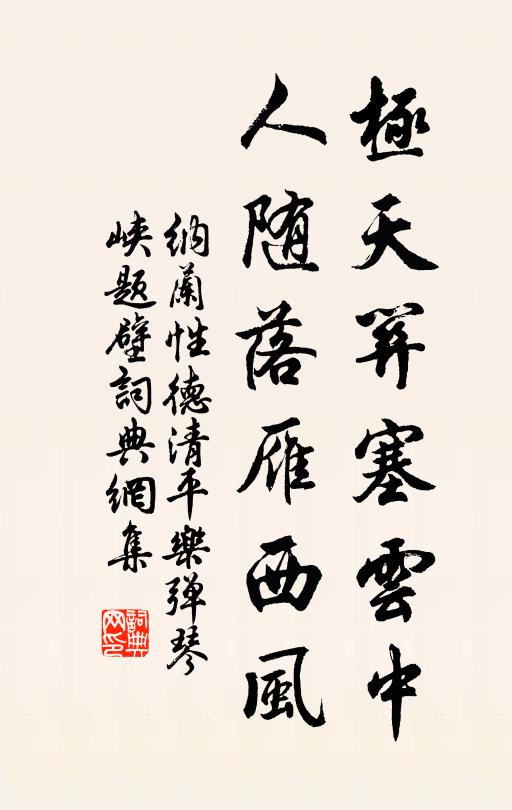 極天關塞雲中
人随落雁西風
納蘭性德清平樂弹琴
峡题壁詞典網集
詞典
网印